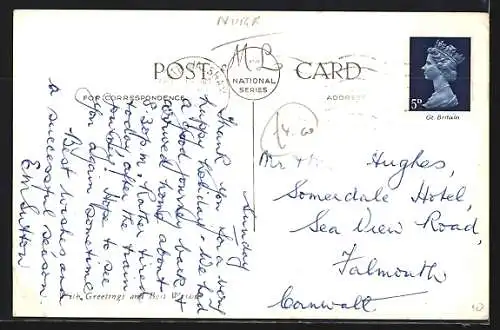 NURR
POST CARD
M L
NATIONAL
SERIES
FOR CORRESPONDENCE
ADDRESS
5D
Gt. Britain
4.60
Sunday
Thank you for a very
happy holiday. We had
a good journey back &
arrived home about
8.30 p.m. Rather tired
today after the train
journey! Hope to see
you again sometime
Best wishes and
a successful season.
Em Sutton
Mr & Mrs Hughes,
Somerdale Hotel,
Sea View Road,
Falmouth
Cornwall
Greetings and Best Wishes